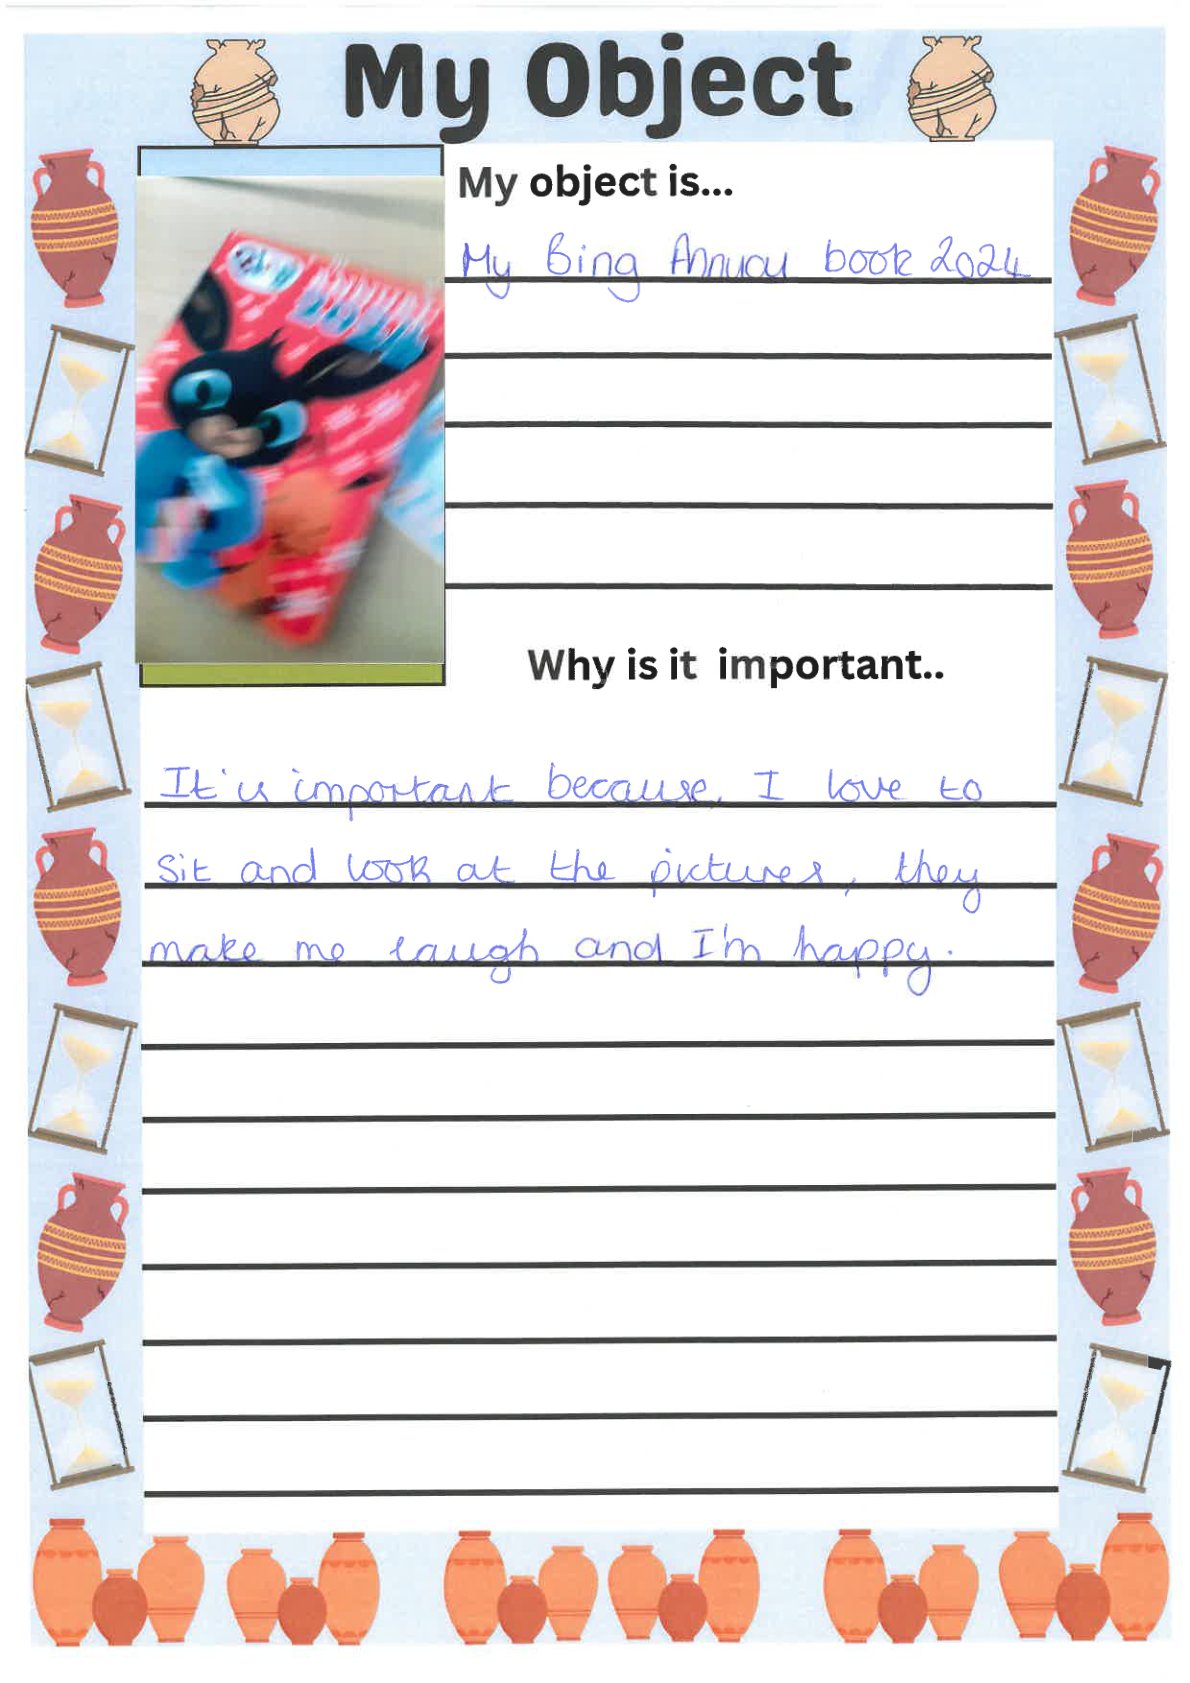 My Object
My object is...
My Bing Annual book 2024
Why is it important..
It is important because, I love to
sit and look at the pictures, they
make me laugh and I'm happy.